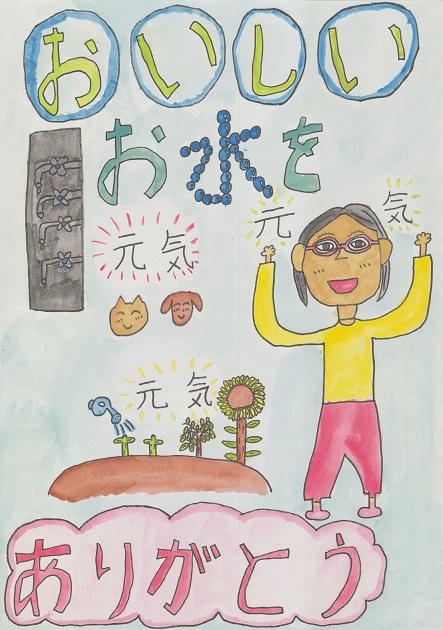 おいしい
お水を
元気
元気
元気
ありがとう